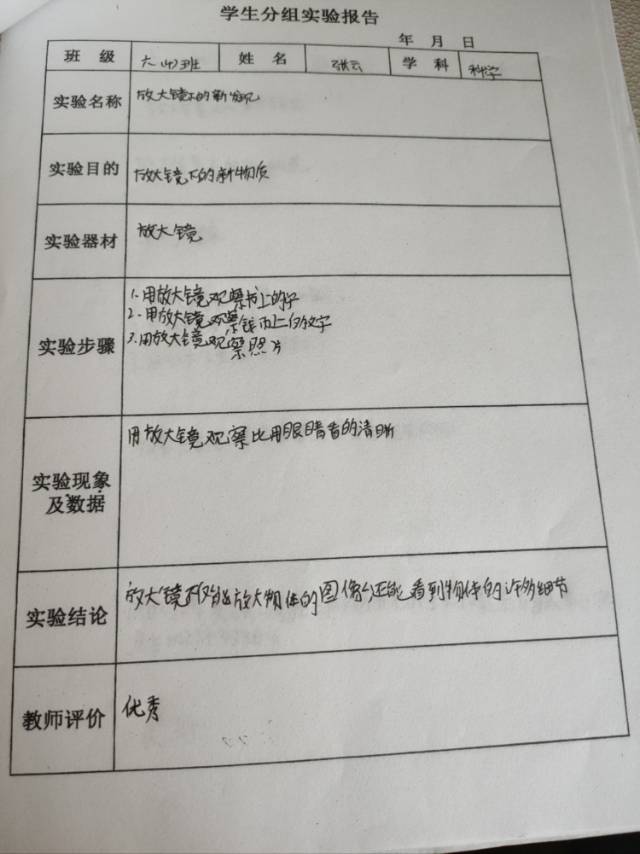 学生分组实验报告
年 月 日
班 级 六(1)班 姓 名 张云 学 科 科学
实验名称 放大镜下的新发现
实验目的 放大镜下的新物质
实验器材 放大镜
实验步骤
1.用放大镜观察书上的字
2.用放大镜观察钱币上的文字
3.用放大镜观察照片
实验现象及数据
用放大镜观察比用眼睛看的清晰
实验结论
放大镜不仅能放大物体的图像,还能看到物体的许多细节
教师评价 优秀